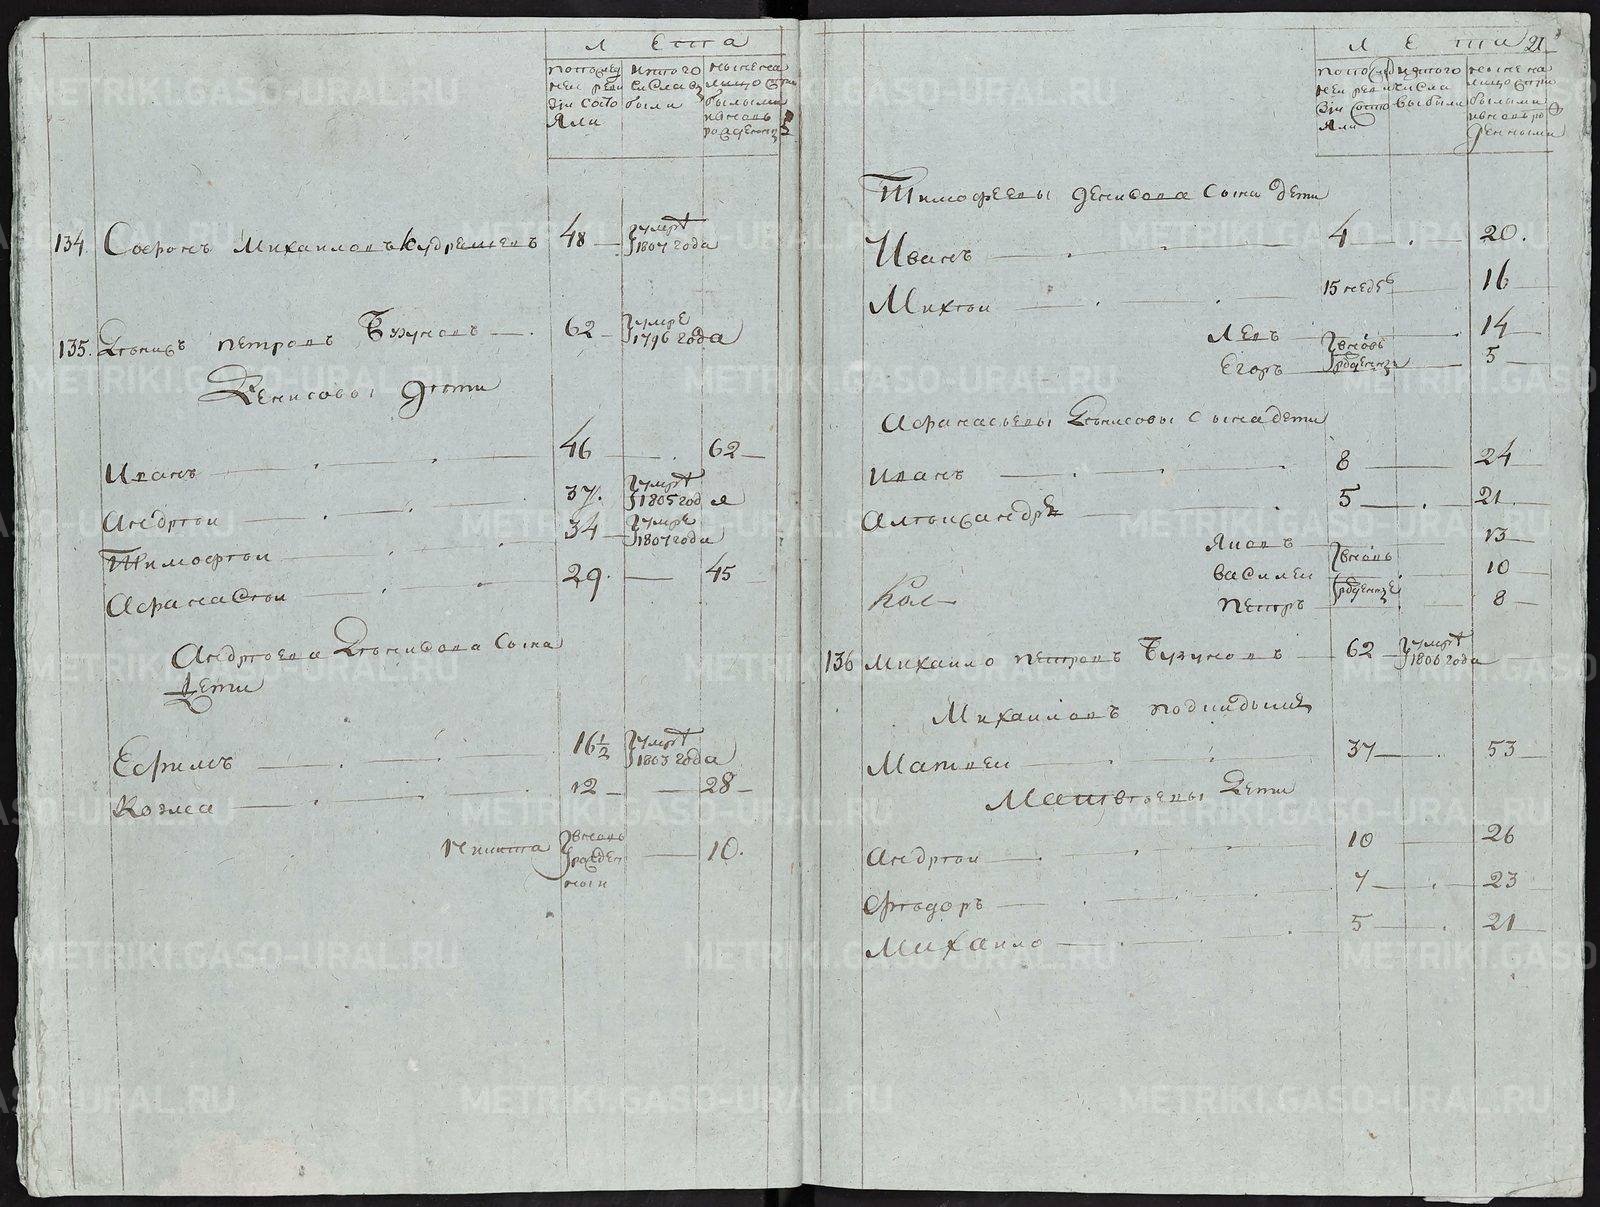 Л ета
по послед
ней реви
зіи состо
яли
изтого
числа вы
были
ныне на
лицо спри
былыми
ивновь
рожденны
134. Софронъ Михаиловъ Кудряшевъ 48 умрѣ
1807 года
135. Дѣнисъ петровъ Бузуновъ 62 умре
1796 года
Денисовы дѣти
Иванъ 46 62
Андрѣи 37. умрѣ
1805 года
Тимофѣи 34 умре
1807 года
Афанасѣи 29. 45
Андрѣева Дѣнисова сына
Дети
Ефимъ 16½ умрѣ
1803 года
Козма 12 28
Никита вновь
рожден
ныи 10.
Л е та 21
по послед
ней реви
зіи состо
яли
изтого
числа
выбыли
ныне на
лицо спри
былыми
ивновь ро
жденными
Тимофеевы денисова сына дети
Иванъ 4 20.
Михѣи 15 недѣ 16
Левъ 14
вновь
рожденны
Егоръ 5
Афанасьевы Дѣнисовы сына дети
Иванъ 8 24
Алѣѯандръ 5 21
Яковъ 13
вновь
Василеи 10
рожденны
петръ 8
136 Михаило петровъ Бузуновъ 62 умрѣ
1806 года
Михаиловъ
Матвеи 37 53
Матвѣевы Дети
Андрѣи 10 26
Фѣодоръ 7 23
Михаило 5 21
METRIKI.GASO-URAL.RU